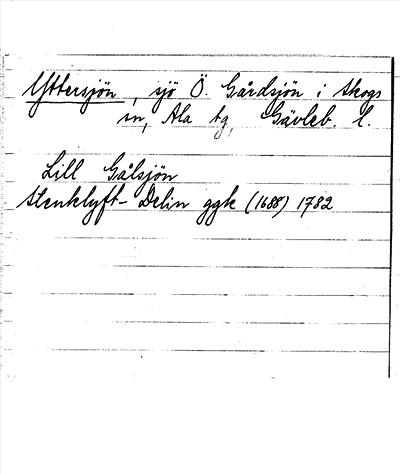 Yttersjön, sjö Ö. Gårdsjön i Skogs
sn, Ala tg, Gävleb. l.
Lill Gålsjön
Stenklyft-Delin ggk (1688) 1782